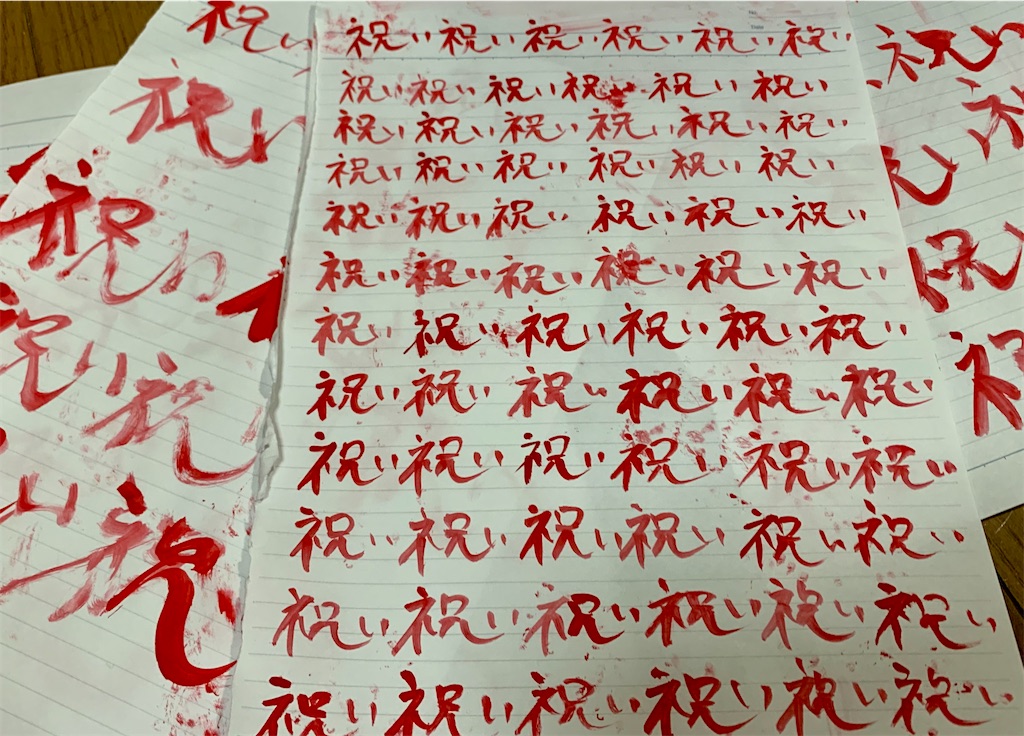 祝い
祝い
祝い
祝い 祝い
祝
No.
Date
祝い 祝い 祝い 祝い 祝い 祝い
祝い 祝い 祝い 祝い 祝い 祝い
祝い 祝い 祝い 祝い 祝い 祝い
祝い 祝い 祝い 祝い 祝い 祝い
祝い 祝い 祝い 祝い 祝い 祝い
祝い 祝い 祝い 祝い 祝い 祝い
祝い 祝い 祝い 祝い 祝い 祝い
祝い 祝い 祝い 祝い 祝い 祝い
祝い 祝い 祝い 祝い 祝い 祝い
祝い 祝い 祝い 祝い 祝い 祝い
祝い 祝い 祝い 祝い 祝い 祝い
祝い 祝い 祝い 祝い 祝い 祝い
祝い